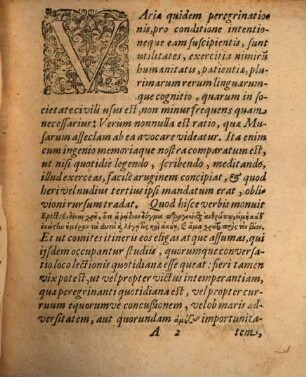 VAriæ quidem peregrinatio-
nis, pro conditione intentio-
neque eam suscipientis, sunt
utilitates, exercitia nimirũ
humanitatis, patientiæ, plu-
rimarum rerum linguarum-
que cognitio, quarum in so-
cietate civili usus est, non minus frequens quam
necessarius: Verum nonnulla est ratio, quæ Mu-
sarum asseclam ab ea avocare videatur. Ita enim
cum ingenio memoriaque nostra comparatum est,
ut nisi quotidie legendo, scribendo, meditando,
illud exerceas, facile æruginem concipiat, & quod
heri vel nudius tertius ipsi mandatum erat, obli-
vioni rursum tradat. Quod hisce verbis monuit
Et ut comites itineris eos eligas at que assumas, qui
iisdem occupantur studiis, quorumque conversa-
tio loco lectionis quotidianæ esse queat: fieri tamen
vix potest, ut vel propter victus intemperantiam,
quæ peregrinanti quotidiana est, vel propter cur-
ruum equorumve concussionem, vel ob maris ad-
versitatem, aut quorundam importunita-
A 2 tem,